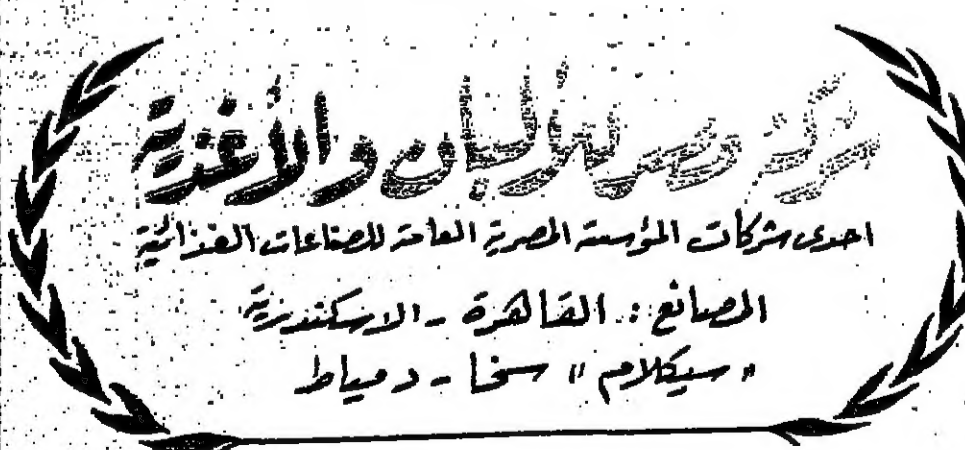 شركة مصر للألبان والأغذية
احدى شركات المؤسسة المصرية العامة للصناعات الغذائية
المصانع : القاهرة - الاسكندرية
"سيكلام" سخا - دمياط